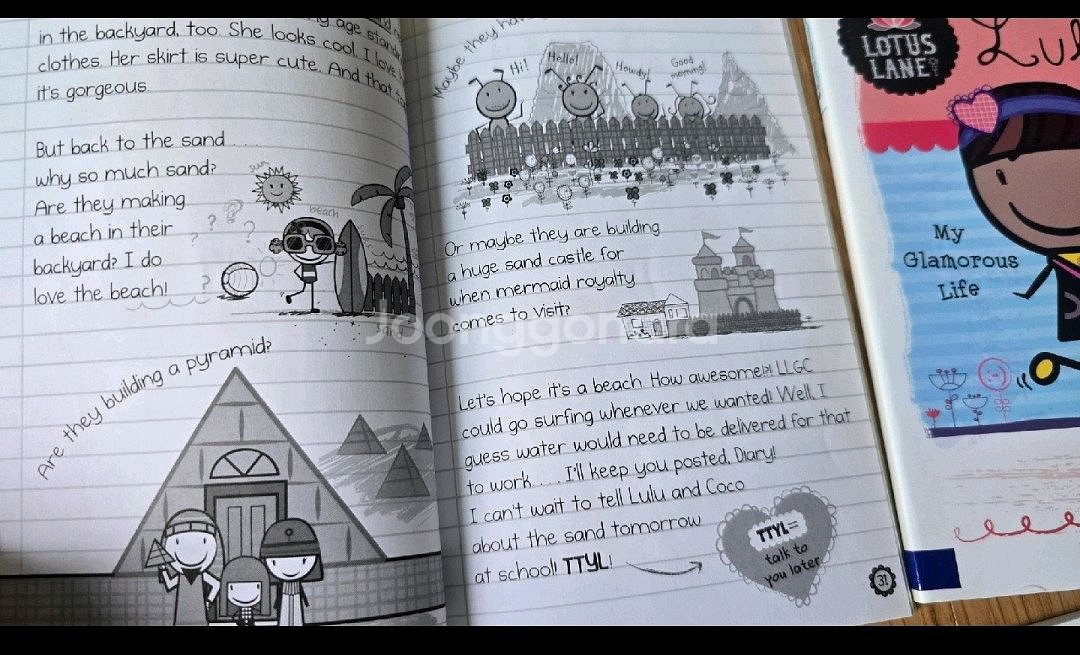 in the backyard, too. She looks cool. I love
clothes. Her skirt is super cute. And that
it's gorgeous.
But back to the sand . . . .
why so much sand?
Are they making
a beach in their
backyard? I do
love the beach!
sun
beach
sand
Are they building a pyramid?
Maybe they have
Hi!
Hello!
Howdy!
Good
morning!
Or maybe they are building
a huge sand castle for
when mermaid royalty
comes to visit?
Let's hope it's a beach. How awesome?! LLGC
could go surfing whenever we wanted! Well, I
guess water would need to be delivered for that
to work . . . . I'll keep you posted, Diary!
I can't wait to tell Lulu and Coco
about the sand tomorrow
at school! TTYL!
TTYL=
talk to
you later
31
LOTUS
LANE
My
Glamorous
Life
Joonggonara